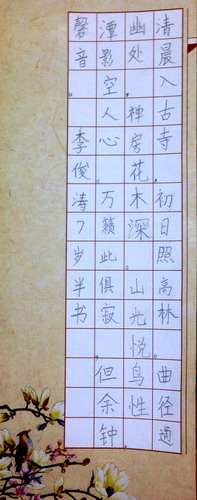 清晨入古寺。初日照高林。曲径通
幽处。禅房花木深。山光悦鸟性
潭影空人心。万籁此俱寂。但余钟
磬音。李俊涛7岁半书